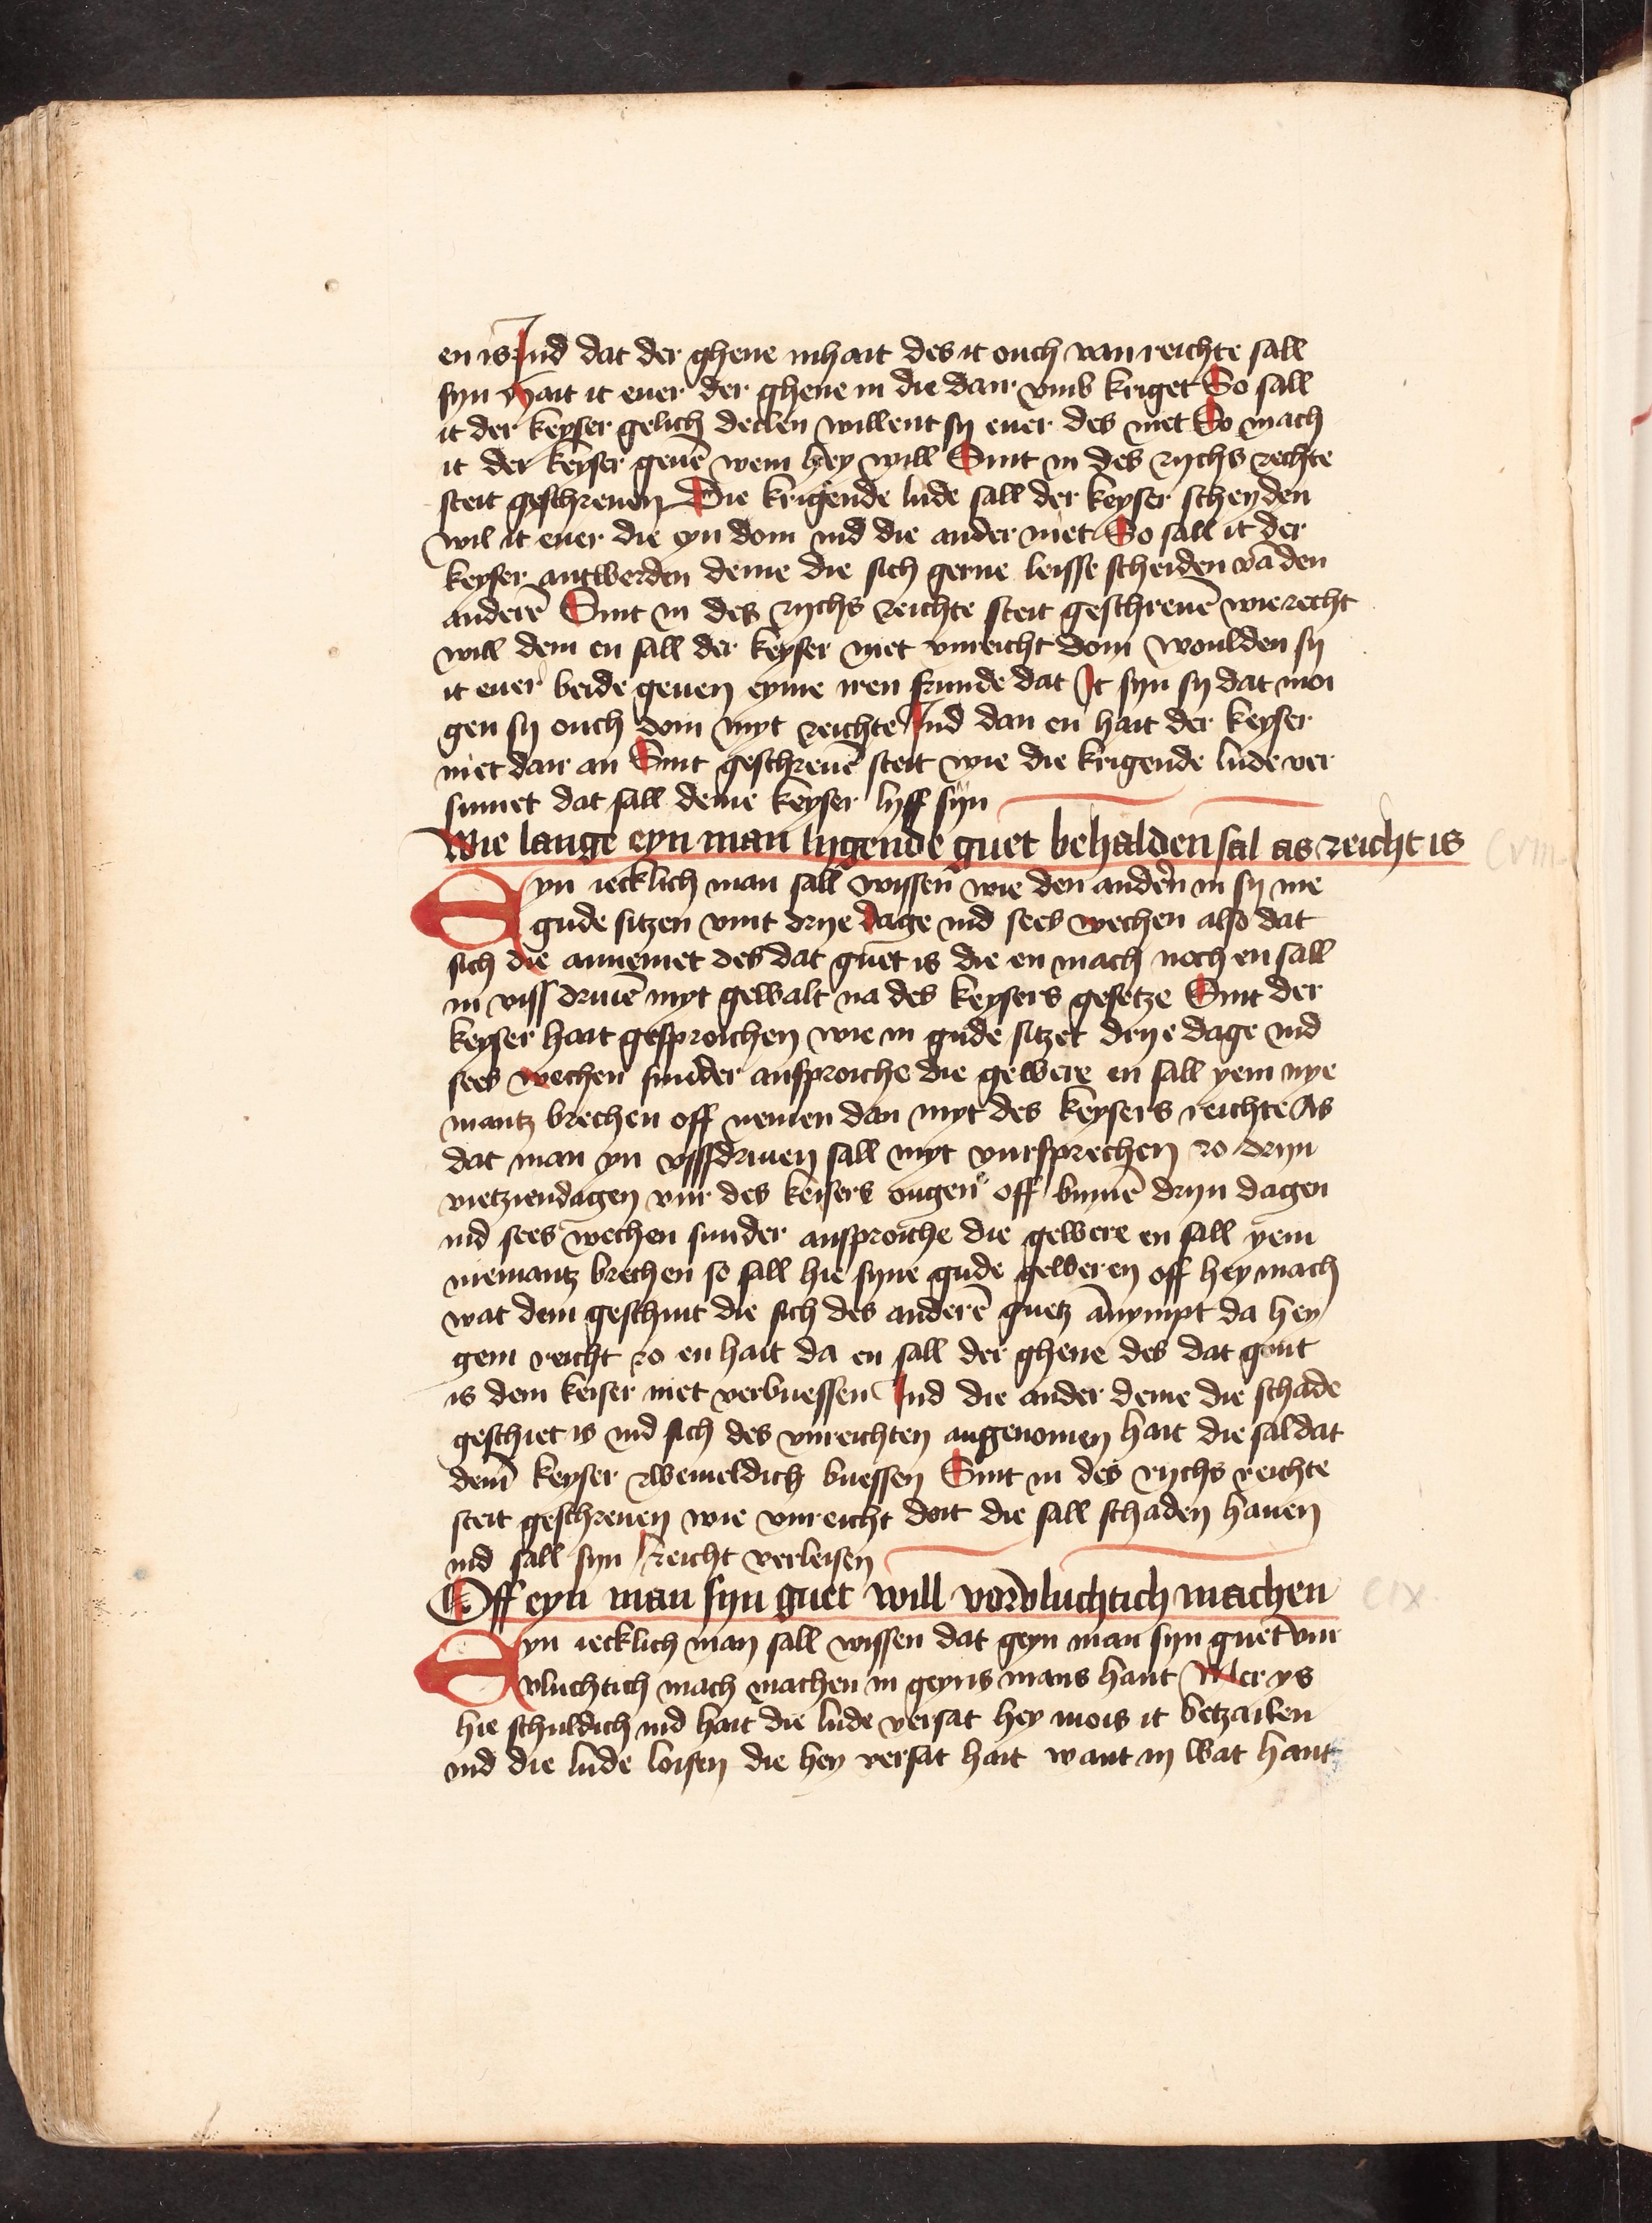 en is Ind dat der ghene inhait des it ouch van reichte sall
syn Hait it euer der ghene in die dair vmb kriget So sall
it der keyser gelich deilen willent sy euer des niet So mach
it der keyser geuē wem hey will Sint in des rychs rechte
steit geschreuen Die krigende lude sall der keyser scheyden
wil it euer die eyn doin ind die ander niet So sall it der
keyser antwerden deme die sich gerne leisse scheiden vā den
anderē Sint in des rychs reichte steit geschreuē wie recht
will dem en sall der keyser niet vnreicht doin woulden sy
it euer beide geuen eyme iren frunde dat It syn sy dat moi
gen sy ouch doin myt reichte Ind dan en hait der keyser
niet dair an Sint geschreuē steit wie die krigende lude ver
sumet dat sall deme keyser lyff syn
Wie lange eyn man lygende guet behalden sal as reicht is
CVIII
Eyn iecklich man sall wissen wie den anderen in sy me
gude sitzen vint drye dage ind sees wechen also dat
sich die annemet des dat guet is die en mach noch en sall
in viss driuē myt gewalt na des keysers gesetze Sint der
keyser hait gesproichen wie in gude sitzet drye dage ind
sees wechen sunder ansproiche die gewere en sall yem nye
mantz brechen off nemen dan myt des keysers reichte As
dat man yn vssdriuen sall myt vursprechen zo dryn
vietziendagen vur des keisers ougen off bynnē dryn dagen
ind sees wechen sunder ansproiche die gewere en sall yem
niemantz brechen so sall hie syne gude geweren off hey mach
wat dem geschuit die sich des anderē guetz ānympt da hey
gein reicht zo en hait da en sall der ghene des dat gout
is dem keiser niet verbuessen Ind die ander deme die schade
geschiet is ind sich des vnreichten angenomen hait die sal dat
dem keyser zweueldich buessen Sint in des rychs reichte
steit geschreuen wie vnreicht doit die sall schaden hauen
ind sall syn Reicht verleisen
Off eyn man syn guet will vorvluchtich machen
CIX
Eyn iecklich man sall wissen dat geyn man syn guet vur
vluchtich mach machen in geyns mans hant Mer ys
hie schuldich ind hait die lude versat hey mois it betzailen
ind die lude loisen die hey versat hait want in wat hant